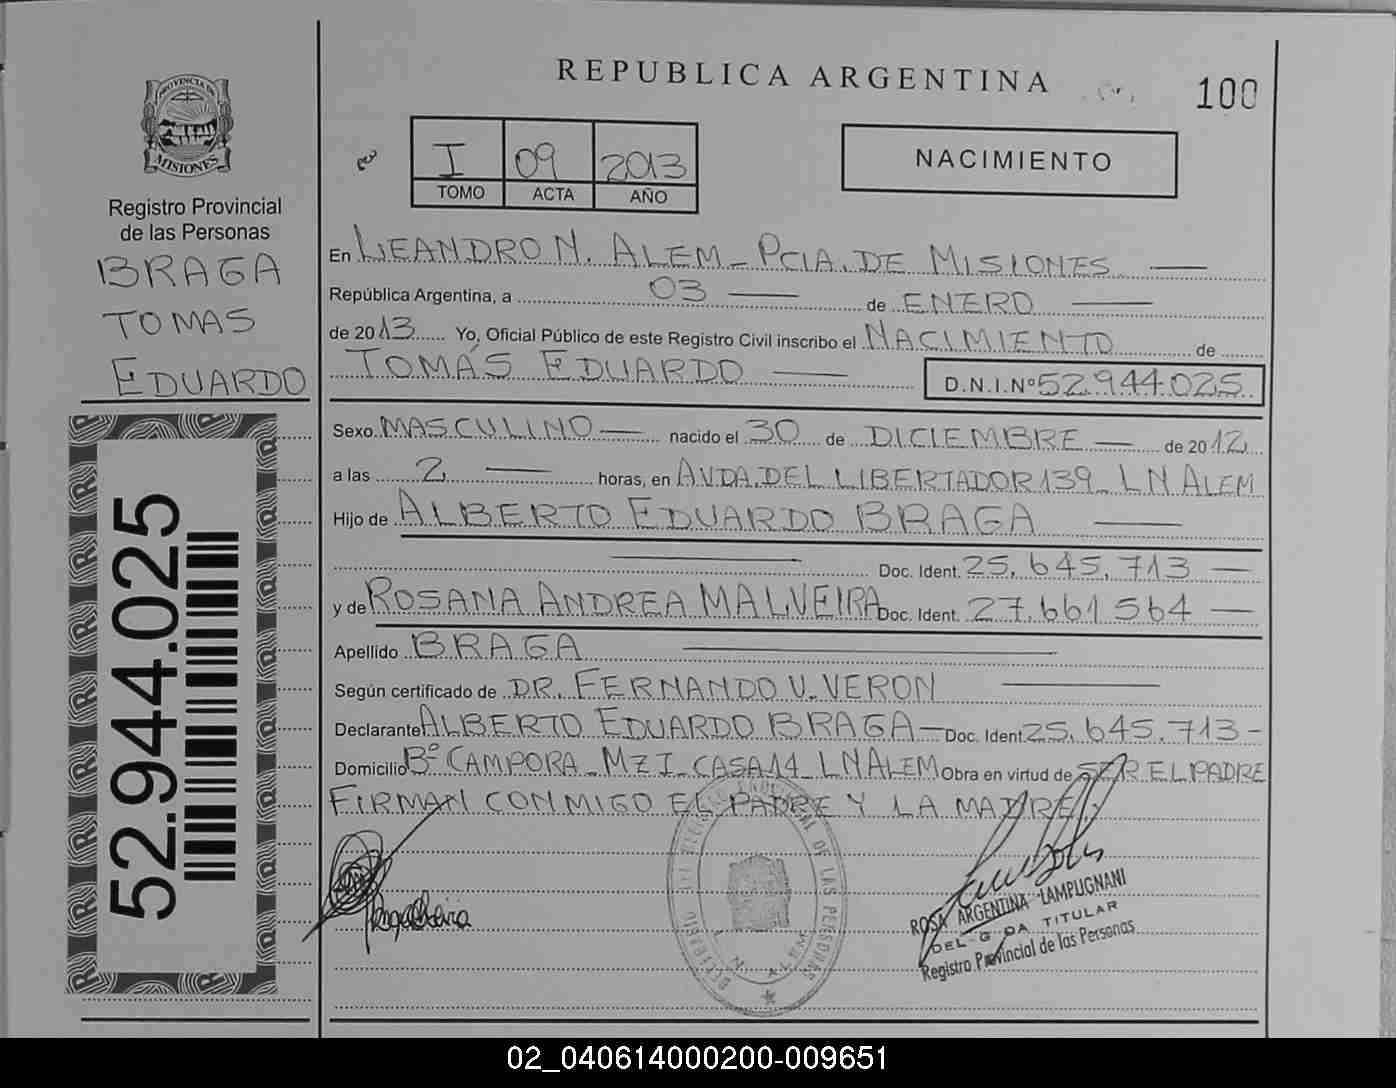 REPUBLICA ARGENTINA
100
PROVINCIA DE
MISIONES
Registro Provincial
de las Personas
BRAGA
TOMAS
EDUARDO
52.944.025
I 09 2013
TOMO ACTA AÑO
NACIMIENTO
En LEANDRO N. ALEM - PCIA. DE MISIONES
República Argentina, a 03 de ENERO
de 2013 Yo, Oficial Público de este Registro Civil inscribo el NACIMIENTO de
TOMÁS EDUARDO D.N.I.Nº 52.944.025
Sexo MASCULINO nacido el 30 de DICIEMBRE de 2012
a las 2 horas, en AVDA. DEL LIBERTADOR 139 - L N ALEM
Hijo de ALBERTO EDUARDO BRAGA
Doc. Ident. 25.645.713
y de ROSANA ANDREA MALVEIRA Doc. Ident. 27.661.564
Apellido BRAGA
Según certificado de DR. FERNANDO V. VERON
Declarante ALBERTO EDUARDO BRAGA - Doc. Ident. 25.645.713 -
Domicilio Bº CAMPORA - MZ I - CASA 14 - L N ALEM Obra en virtud de SER EL PADRE
FIRMAN CONMIGO EL PADRE Y LA MADRE.
REGISTRO PROVINCIAL DE LAS PERSONAS
L. N. ALEM
ROSA ARGENTINA LAMPUGNANI
DELEGADA TITULAR
Registro Provincial de las Personas
02_040614000200-009651